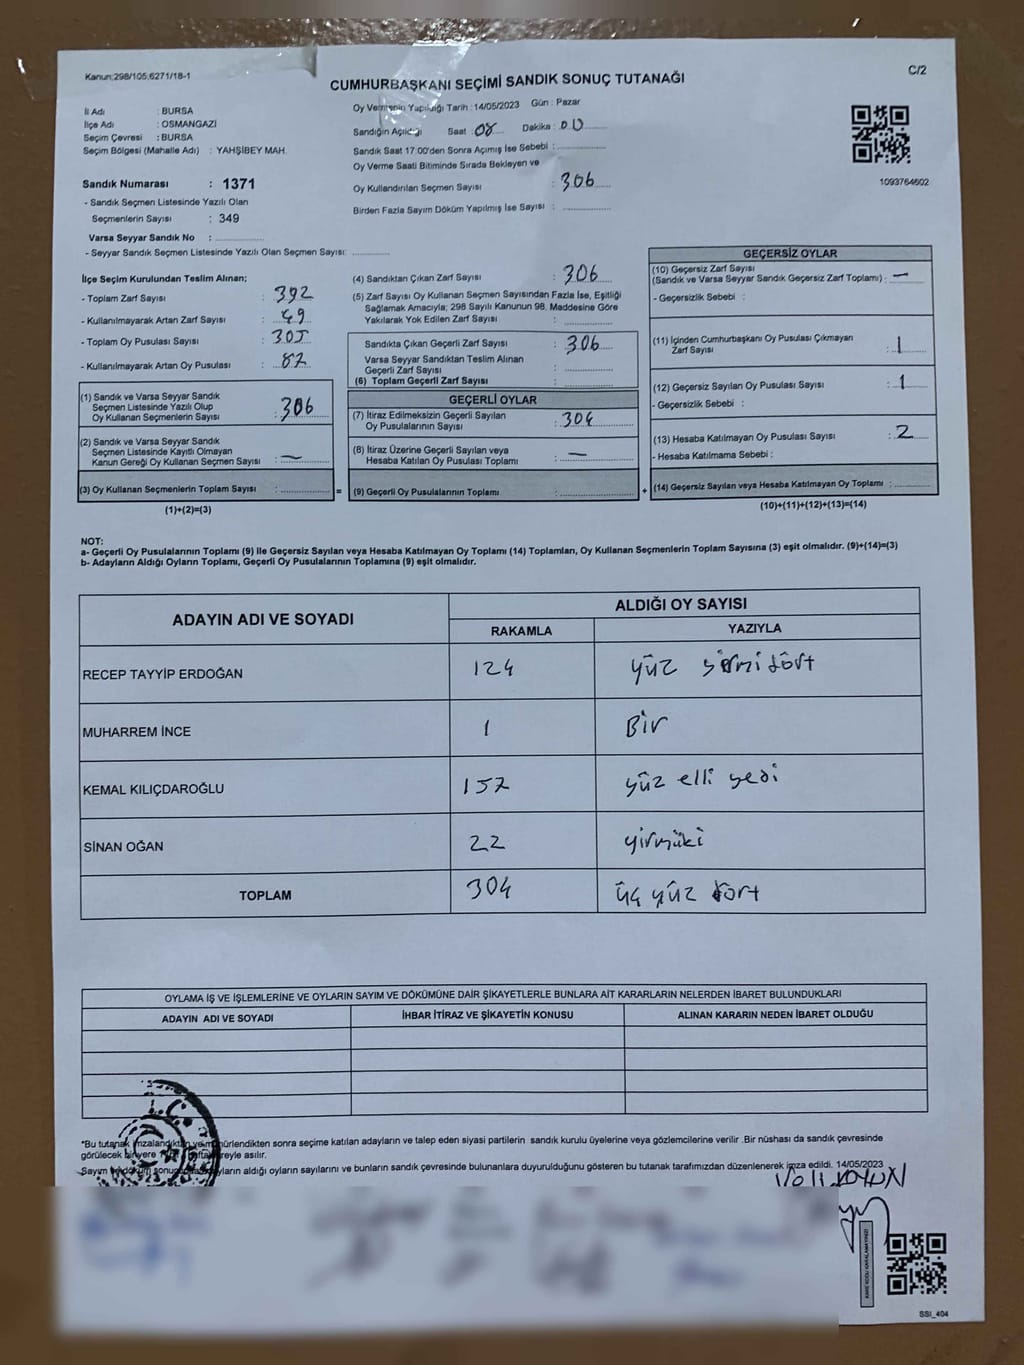 Kanun:298/105;6271/18-1
C/2
CUMHURBAŞKANI SEÇİMİ SANDIK SONUÇ TUTANAĞI
İl Adı : BURSA
İlçe Adı : OSMANGAZİ
Seçim Çevresi : BURSA
Seçim Bölgesi (Mahalle Adı) : YAHŞİBEY MAH.
Sandık Numarası : 1371
- Sandık Seçmen Listesinde Yazılı Olan
Seçmenlerin Sayısı : 349
Varsa Seyyar Sandık No :
- Seyyar Sandık Seçmen Listesinde Yazılı Olan Seçmen Sayısı:
Oy Vermenin Yapıldığı Tarih : 14/05/2023 Gün : Pazar
Sandığın Açıldığı Saat : 08 Dakika : 00
Sandık Saat 17:00'den Sonra Açımış İse Sebebi :
Oy Verme Saati Bitiminde Sırada Bekleyen ve
Oy Kullandırılan Seçmen Sayısı : 306
Birden Fazla Sayım Döküm Yapılmış İse Sayısı :
1093764602
İlçe Seçim Kurulundan Teslim Alınan;
- Toplam Zarf Sayısı : 392
- Kullanılmayarak Artan Zarf Sayısı : 49
- Toplam Oy Pusulası Sayısı : 305
- Kullanılmayarak Artan Oy Pusulası : 82
(1) Sandık ve Varsa Seyyar Sandık
Seçmen Listesinde Yazılı Olup
Oy Kullanan Seçmenlerin Sayısı : 306
(2) Sandık ve Varsa Seyyar Sandık
Seçmen Listesinde Kayıtlı Olmayan
Kanun Gereği Oy Kullanan Seçmen Sayısı : —
(3) Oy Kullanan Seçmenlerin Toplam Sayısı :
(1)+(2)=(3)
(4) Sandıktan Çıkan Zarf Sayısı : 306
(5) Zarf Sayısı Oy Kullanan Seçmen Sayısından Fazla İse, Eşitliği
Sağlamak Amacıyla; 298 Sayılı Kanunun 98. Maddesine Göre
Yakılarak Yok Edilen Zarf Sayısı :
Sandıkta Çıkan Geçerli Zarf Sayısı : 306
Varsa Seyyar Sandıktan Teslim Alınan
Geçerli Zarf Sayısı :
(6) Toplam Geçerli Zarf Sayısı :
GEÇERLİ OYLAR
(7) İtiraz Edilmeksizin Geçerli Sayılan
Oy Pusulalarının Sayısı : 304
(8) İtiraz Üzerine Geçerli Sayılan veya
Hesaba Katılan Oy Pusulası Toplamı : —
= (9) Geçerli Oy Pusulalarının Toplamı :
GEÇERSİZ OYLAR
(10) Geçersiz Zarf Sayısı
(Sandık ve Varsa Seyyar Sandık Geçersiz Zarf Toplamı) : —
- Geçersizlik Sebebi :
(11) İçinden Cumhurbaşkanı Oy Pusulası Çıkmayan
Zarf Sayısı : 1
(12) Geçersiz Sayılan Oy Pusulası Sayısı : 1
- Geçersizlik Sebebi :
(13) Hesaba Katılmayan Oy Pusulası Sayısı : 2
- Hesaba Katılmama Sebebi :
+ (14) Geçersiz Sayılan veya Hesaba Katılmayan Oy Toplamı :
(10)+(11)+(12)+(13)=(14)
NOT:
a- Geçerli Oy Pusulalarının Toplamı (9) ile Geçersiz Sayılan veya Hesaba Katılmayan Oy Toplamı (14) Toplamları, Oy Kullanan Seçmenlerin Toplam Sayısına (3) eşit olmalıdır. (9)+(14)=(3)
b- Adayların Aldığı Oyların Toplamı, Geçerli Oy Pusulalarının Toplamına (9) eşit olmalıdır.
ADAYIN ADI VE SOYADI ALDIĞI OY SAYISI
RAKAMLA YAZIYLA
RECEP TAYYİP ERDOĞAN 124 yüz yirmi dört
MUHARREM İNCE 1 Bir
KEMAL KILIÇDAROĞLU 157 yüz elli yedi
SİNAN OĞAN 22 yirmiiki
TOPLAM 304 üç yüz dört
OYLAMA İŞ VE İŞLEMLERİNE VE OYLARIN SAYIM VE DÖKÜMÜNE DAİR ŞİKAYETLERLE BUNLARA AİT KARARLARIN NELERDEN İBARET BULUNDUKLARI
ADAYIN ADI VE SOYADI İHBAR İTİRAZ VE ŞİKAYETİN KONUSU ALINAN KARARIN NEDEN İBARET OLDUĞU
*Bu tutanak imzalandıktan ve mühürlendikten sonra seçime katılan adayların ve talep eden siyasi partilerin sandık kurulu üyelerine veya gözlemcilerine verilir .Bir nüshası da sandık çevresinde
görülecek bir yere süreyle asılır.
Sayım ve döküm adayların aldığı oyların sayılarını ve bunların sandık çevresinde bulunanlara duyurulduğunu gösteren bu tutanak tarafımızdan düzenlenerek imza edildi. 14/05/2023
KARE KODU KARALAMAYINIZ!
SSI_404